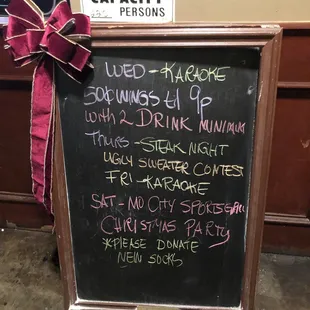 CAPACITY
PERSONS
WED - KARAOKE
50¢ WINGS til 9p
with 2 DRINK MINIMUM
THURS - STEAK NIGHT
UGLY SWEATER CONTEST
FRI - KARAOKE
SAT - MO CITY SPORTS
CHRISTMAS PARTY
*PLEASE DONATE
NEW SOCKS